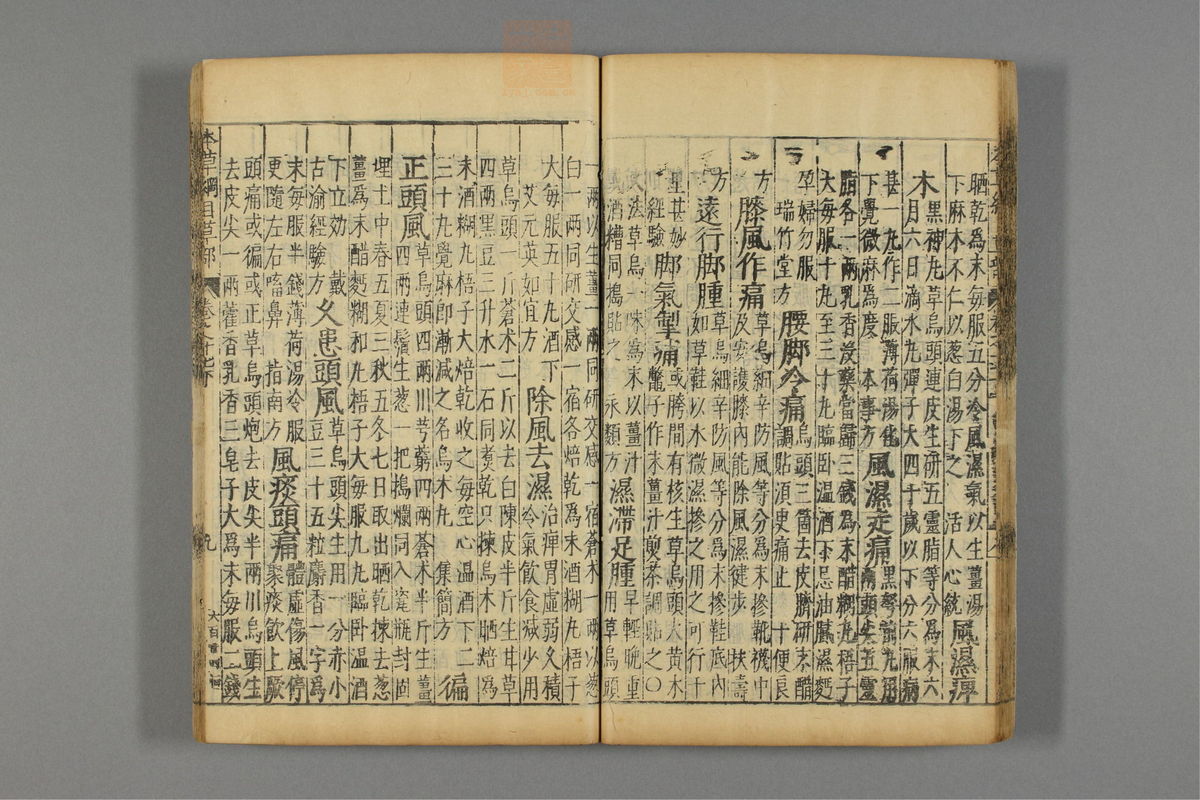 晒乾爲末每服五分冷風濕氣以生薑湯
下麻木不仁以葱白湯下之 活人心統 風濕痺
木 黑神丸草烏頭連皮生研五靈脂等分爲末六
月六日滴水丸彈子大四十歲以下分六服病
甚一丸作二服薄荷湯化
下覺微麻爲度 本事方 風濕走痛 黑弩箭丸用兩頭尖五靈
脂各一兩乳香没藥當歸三錢爲末醋糊丸梧子
大每服十丸至三十丸臨卧温酒下忌油膩濕麪
孕婦勿服
瑞竹堂方 腰脚冷痛 烏頭三箇去皮臍研末醋調貼須臾痛止 十便良
方 膝風作痛 草烏細辛防風等分爲末摻靴襪中及安護膝內能除風濕徤步 扶壽
方 遠行脚腫 草烏細辛防風等分爲末摻鞋底內如草鞋以水微濕摻之用之可行十
里甚妙 脚氣掣痛 或胯間有核生草烏頭大黄木
經驗 鱉子作末薑汁煎茶調貼之〇
又法草烏一味爲末以薑汁
或酒糟同搗貼之 永類方 濕滯足腫 早輕晩重用草烏頭
一兩以生薑一兩同研交感一宿蒼木一兩以葱
白一兩同研交感一宿各焙乾爲末酒糊丸梧子
大每服五十丸酒下
艾元英如宜方 除風去濕 治痺胃虛弱久積冷氣飲食減少用
草烏頭一斤蒼术二斤以去白陳皮半斤生甘草
四兩黑豆三升水一石同煑乾只揀烏木晒焙爲
末酒糊丸梧子大焙乾收之每空心温酒下二
三十丸覺麻即漸減之名烏木丸 集簡方 偏
正頭風 草烏頭四兩川芎藭四兩蒼木半斤生薑四兩連鬚生葱一把搗爛同入瓷瓶封固
埋土中春五夏三秋五冬七日取出晒乾揀去葱
薑爲末醋麪糊和丸梧子大每服九丸臨卧温酒
下立効 戴
古渝經驗方 久患頭風 草烏頭尖生用一分赤小豆三十五粒麝香一字爲
末每服半錢薄荷湯冷服
更隨左右㗜鼻 指南方 風痰頭痛 體虛傷風停聚痰飲上厥
頭痛或徧或正草烏頭炮去皮尖半兩川烏頭生
去皮尖一兩藿香乳香三皂子大爲末每服二錢
本草綱目草部
九